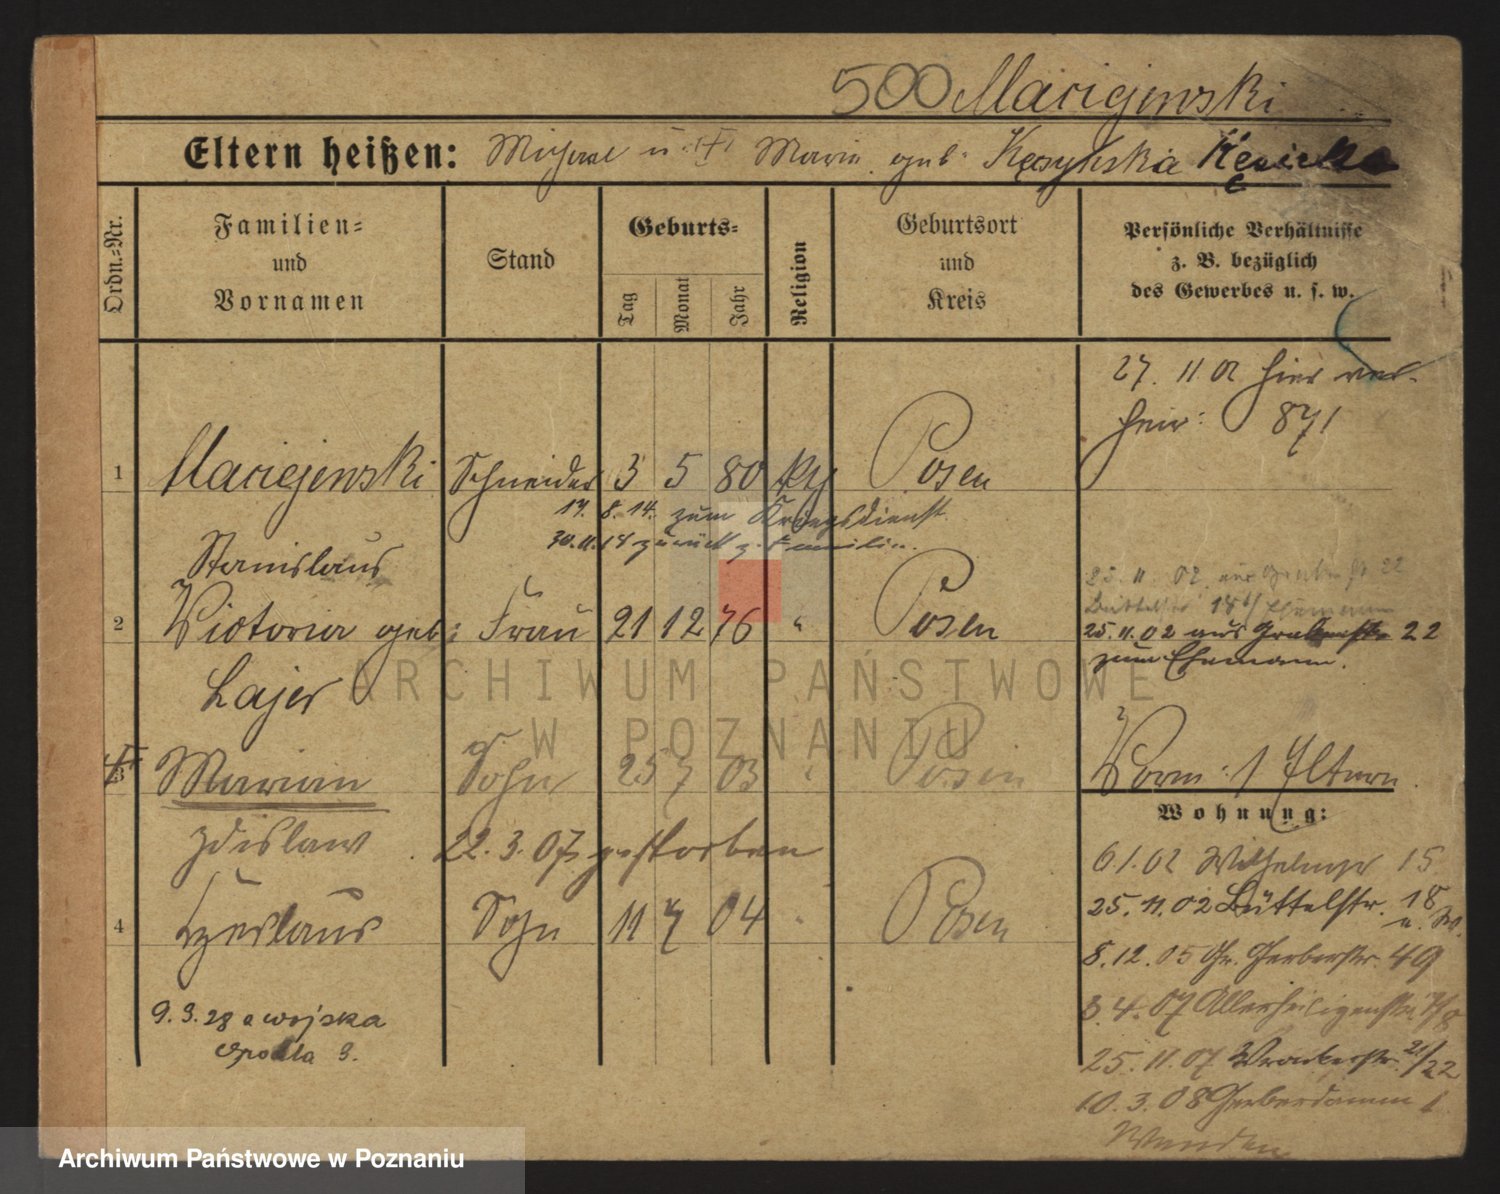 500 Maciejewski
Eltern heißen: Michael u. Maria geb. Kęsyhska Kęsicka
Ordn.-Nr.
Familien-
und
Vornamen
Stand
Geburts-
Tag
Monat
Jahr
Religion
Geburtsort
und
Kreis
Persönliche Verhältnisse
z. B. bezüglich
des Gewerbes u. s. w.
27. 11. 02 hier ver-
heir: 871
1 Maciejewski Schneider 3 5 80 kth Posen
14. 8. 14. zum Kriegsdienst
30. 11. 18 zurück z. Familie.
Stanislaus
25. 11. 02 aus Grabenstr 22
Büttelstr 18 Ehemann
2 Victoria geb: Frau 21 12 76 " Posen
25. 11. 02 aus Grabenstr 22
zum Ehemann.
Lajer
3 Marian Sohn 25 7 03 " Posen
Vorm: 1 Eltern
Wohnung:
Zdislaw 22. 3. 07 gestorben
6. 1. 02 Wilhelmspl 15
25. 11. 02 Büttelstr. 18
4 Czeslaus Sohn 11 7 04 " Posen
8. 12. 05 Gr. Gerberstr. 49
3. 4. 07 Allerheiligenstr. 7/8
9. 3. 28 z wojska
25. 11. 07 Wronkerstr. 21/22
10. 3. 08 Gerberdamm 1
Wenden
ARCHIWUM PAŃSTWOWE
W POZNANIU
Archiwum Państwowe w Poznaniu